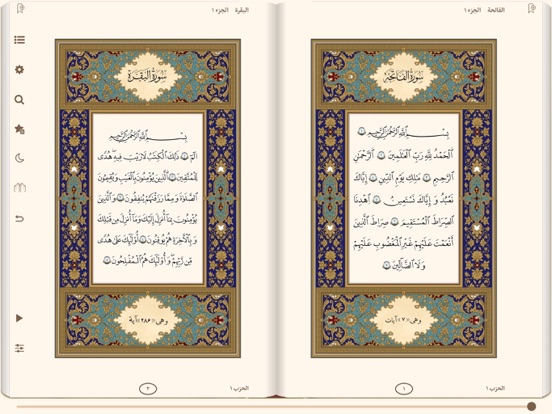 الفاتحة   الجزء ١
سُورَةُ الفَاتِحَةِ
بِسْمِ ٱللَّهِ ٱلرَّحْمَٰنِ ٱلرَّحِيمِ ۝١
ٱلْحَمْدُ لِلَّهِ رَبِّ ٱلْعَٰلَمِينَ ۝٢ ٱلرَّحْمَٰنِ
ٱلرَّحِيمِ ۝٣ مَٰلِكِ يَوْمِ ٱلدِّينِ ۝٤ إِيَّاكَ
نَعْبُدُ وَ إِيَّاكَ نَسْتَعِينُ ۝٥ ٱهْدِنَا
ٱلصِّرَٰطَ ٱلْمُسْتَقِيمَ ۝٦ صِرَٰطَ ٱلَّذِينَ
أَنْعَمْتَ عَلَيْهِمْ غَيْرِ ٱلْمَغْضُوبِ عَلَيْهِمْ
وَلَا ٱلضَّآلِّينَ ۝٧
وهى «٧» آيات
الحزب ١
١
البقرة   الجزء ١
سُورَةُ البَقَرَةِ
بِسْمِ ٱللَّهِ ٱلرَّحْمَٰنِ ٱلرَّحِيمِ
الٓمٓ ۝١ ذَٰلِكَ ٱلْكِتَٰبُ لَا رَيْبَ فِيهِ هُدًى
لِّلْمُتَّقِينَ ۝٢ ٱلَّذِينَ يُؤْمِنُونَ بِٱلْغَيْبِ وَيُقِيمُونَ
ٱلصَّلَوٰةَ وَمِمَّا رَزَقْنَٰهُمْ يُنفِقُونَ ۝٣ وَٱلَّذِينَ
يُؤْمِنُونَ بِمَآ أُنزِلَ إِلَيْكَ وَمَآ أُنزِلَ مِن قَبْلِكَ
وَبِٱلْءَاخِرَةِ هُمْ يُوقِنُونَ ۝٤ أُو۟لَٰٓئِكَ عَلَىٰ هُدًى
مِّن رَّبِّهِمْ وَأُو۟لَٰٓئِكَ هُمُ ٱلْمُفْلِحُونَ ۝٥
وهى «٢٨۶» آية
الحزب ١
٢